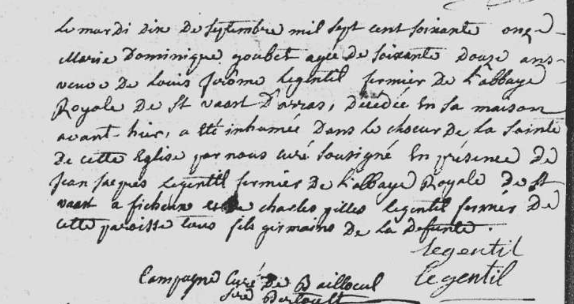 Le mardi dix de septembre mil sept cent soixante onze
Marie Dominique goubet agée de soixante douze ans
veuve de Louis Jerôme Legentil fermier de L'abbaye
Royale de St vaast D'arras, Décédée En sa maison
avant-hier, a été inhumée Dans le choeur de la Sainte
de cette Eglise par nous curé soussigné En présence de
Jean Jacques Legentil fermier de L'abbaye Royale de St
vaast a ficheux et de charles gilles Legentil fermier de
cette paroisse tous fils germains de la defunte.
Legentil
Campagne Curé De Bailleul Legentil
Sire Bertoult